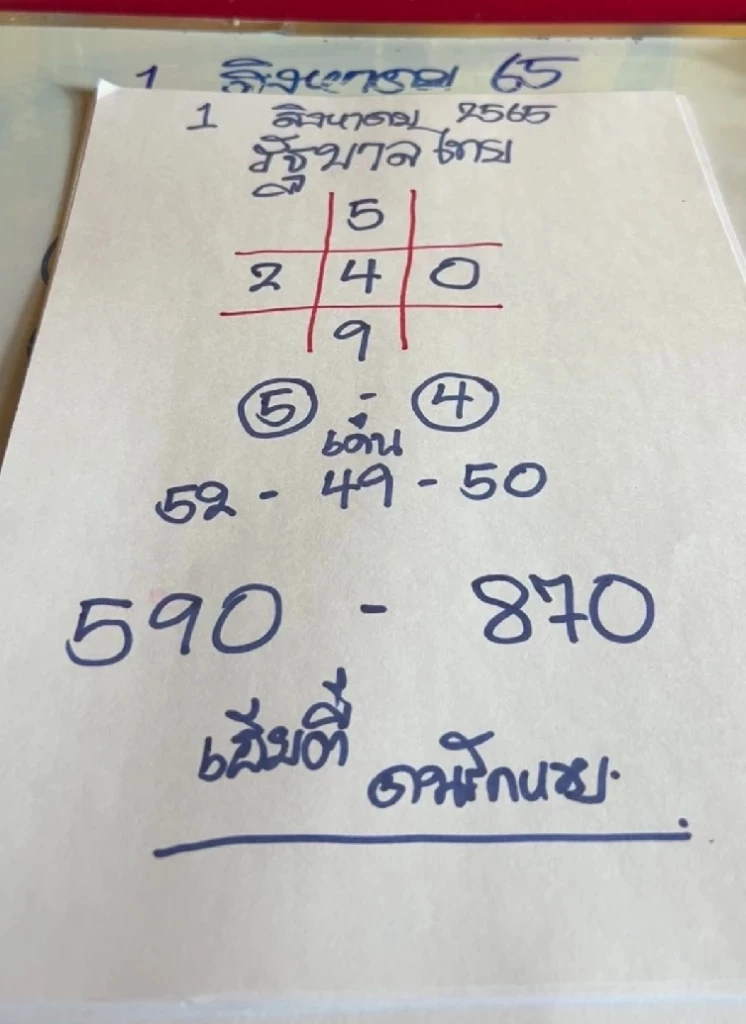 1 สิงหาคม 65
1 สิงหาคม 2565
รัฐบาลไทย
5
2 4 0
9
5 - 4
เด่น
52 - 49 - 50
590 - 870
คนรักหวย.